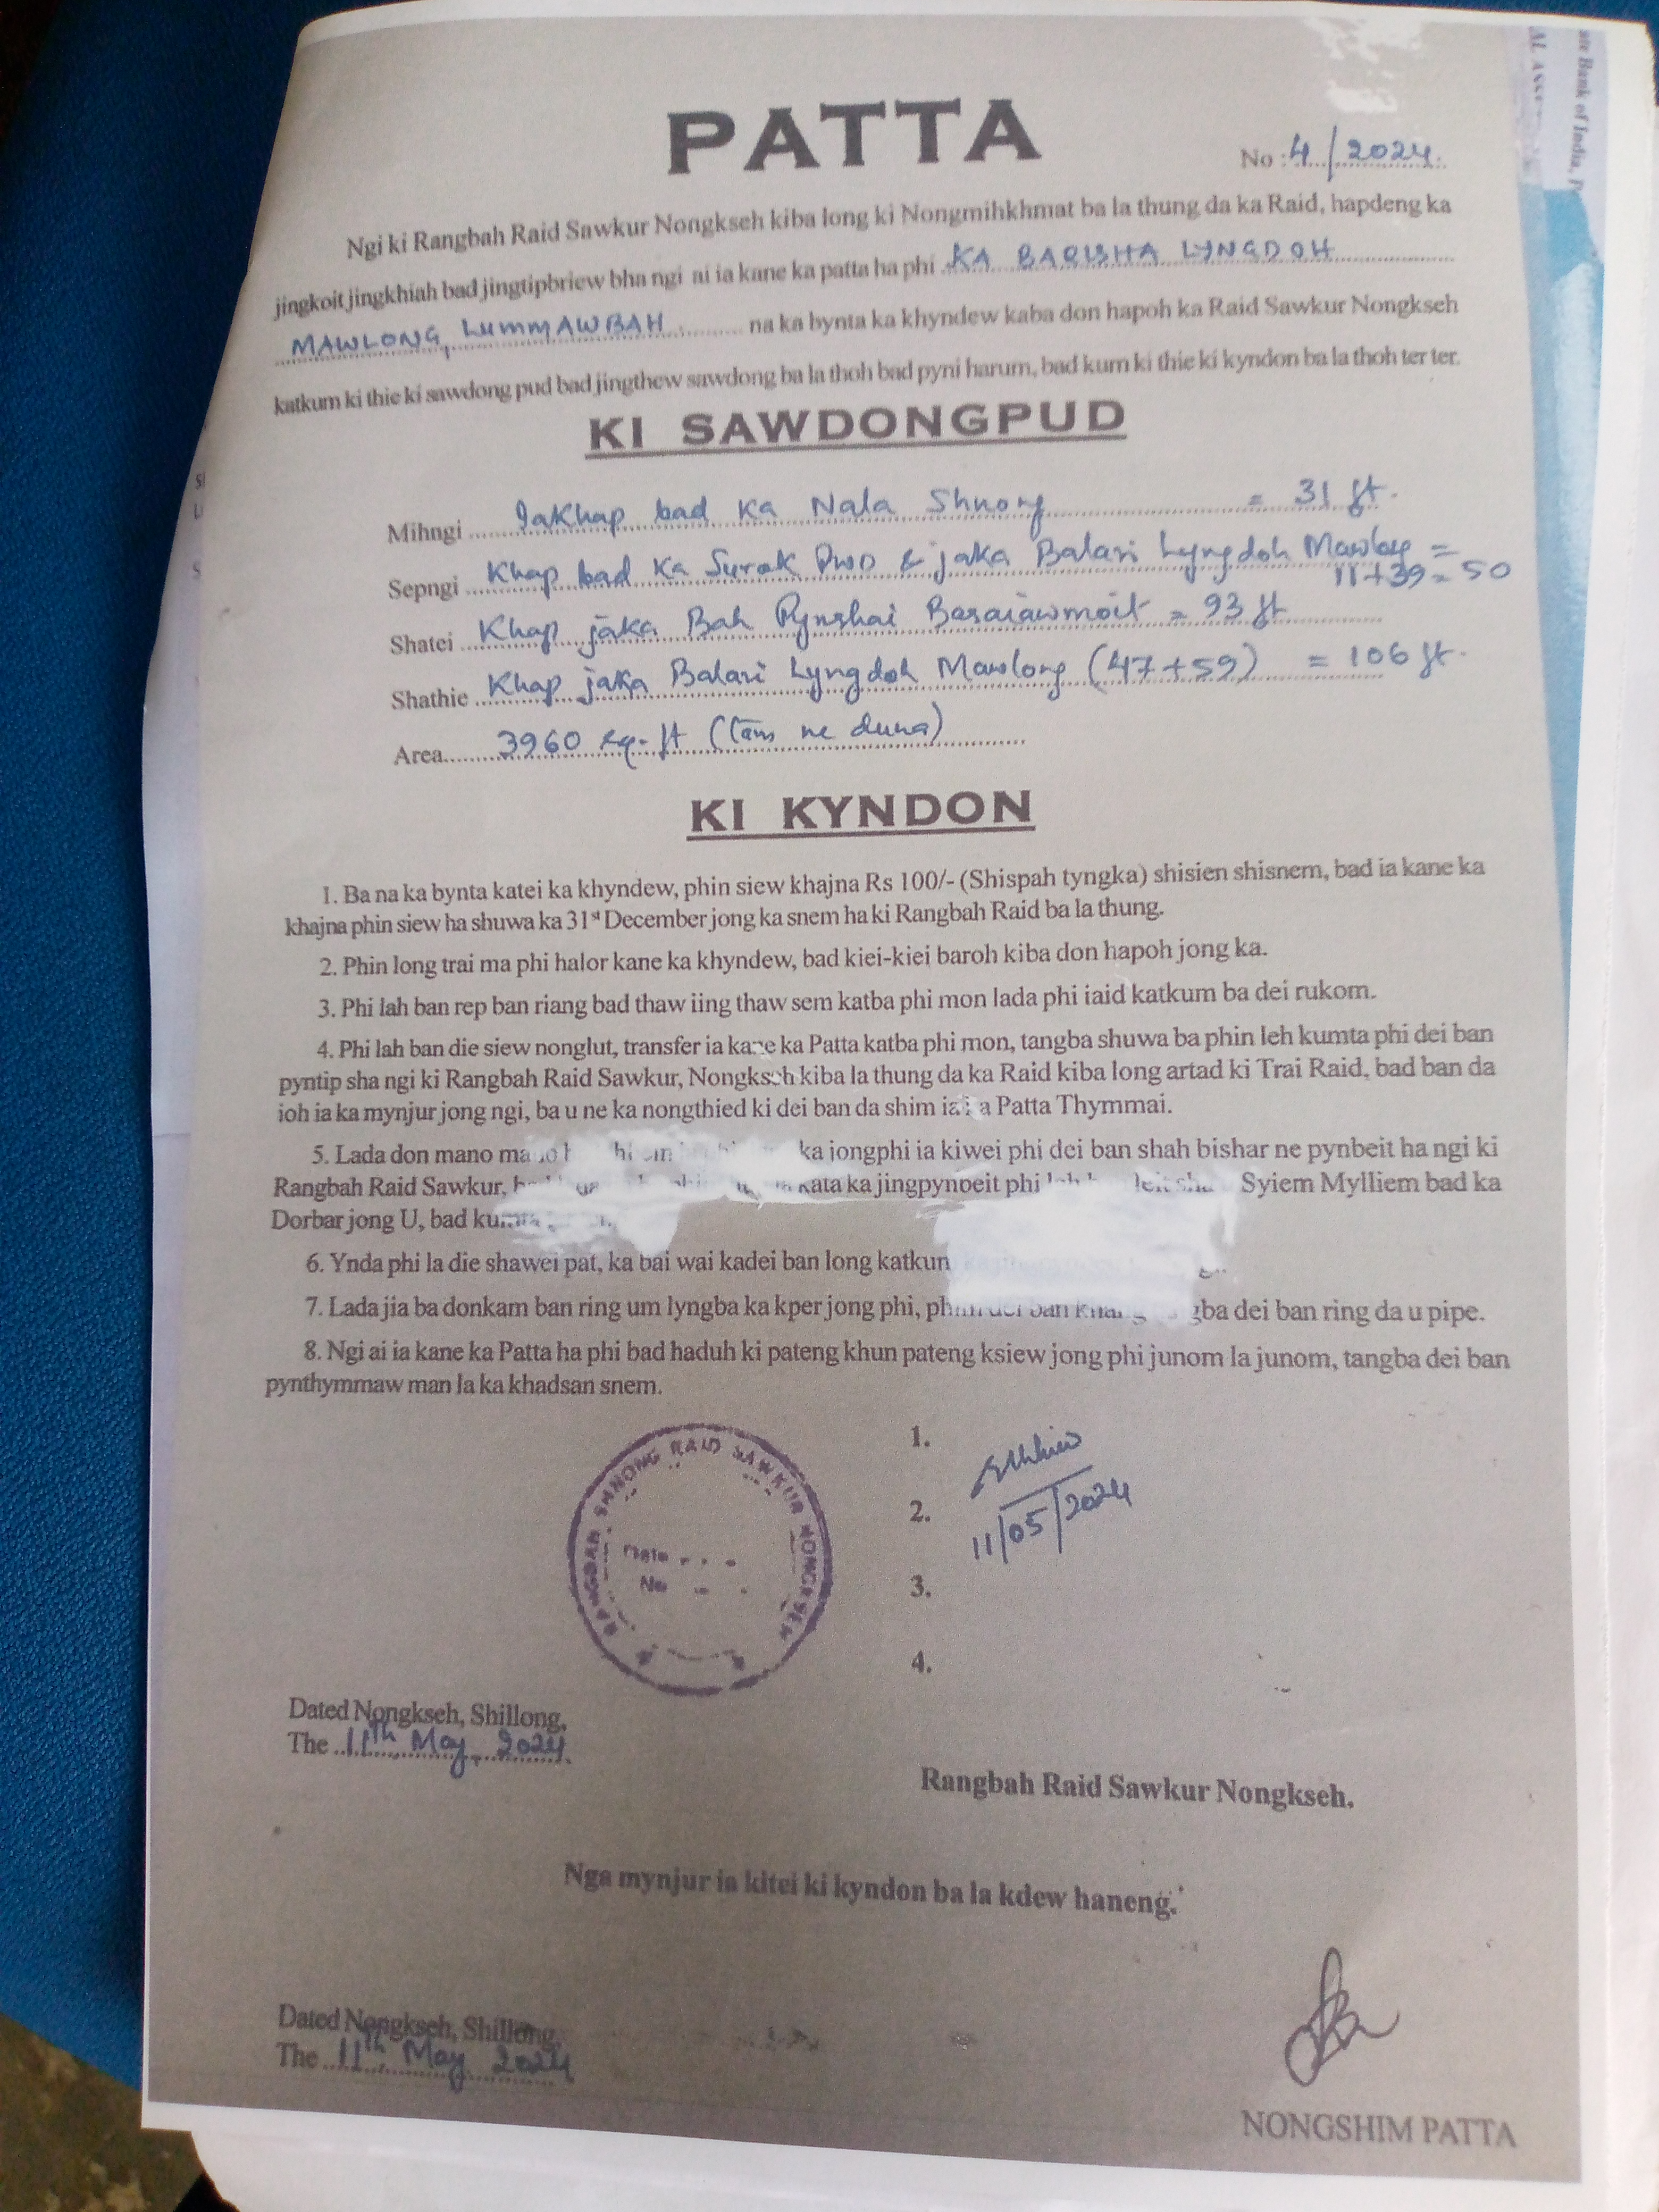 PATTA
No : 4/2024.
Ngi ki Rangbah Raid Sawkur Nongkseh kiba long ki Nongmihkhmat ba la thung da ka Raid, hapdeng ka
jingkoit jingkhiah bad jingtipbriew bha ngi ai ia kane ka patta ha phi KA BARISHA LYNGDOH
MAWLONG, LUMMAWBAH, na ka bynta ka khyndew kaba don hapoh ka Raid Sawkur Nongkseh
katkum ki thie ki sawdong pud bad jingthew sawdong ba la thoh bad pyni harum, bad kum ki thie ki kyndon ba la thoh ter ter.
KI SAWDONGPUD
Mihngi Iakhap bad Ka Nala Shnong = 31 ft.
Sepngi Khap bad Ka Surok PWD & jaka Balari Lyngdoh Mawlong =
11+39 = 50
Shatei Khap jaka Bah Pynshai = 93 ft
Shathie Khap jaka Balari Lyngdoh Mawlong (47+59) = 106 ft.
Area 3960 sq. ft (tam ne duna)
KI KYNDON
1. Ba na ka bynta katei ka khyndew, phin siew khajna Rs 100/- (Shispah tyngka) shisien shisnem, bad ia kane ka
khajna phin siew ha shuwa ka 31st December jong ka snem ha ki Rangbah Raid ba la thung.
2. Phin long trai ma phi halor kane ka khyndew, bad kiei-kiei baroh kiba don hapoh jong ka.
3. Phi lah ban rep ban riang bad thaw iing thaw sem katba phi mon lada phi iaid katkum ba dei rukom.
4. Phi lah ban die siew nonglut, transfer ia kane ka Patta katba phi mon, tangba shuwa ba phin leh kumta phi dei ban
pyntip sha ngi ki Rangbah Raid Sawkur, Nongkseh kiba la thung da ka Raid kiba long artad ki Trai Raid, bad ban da
ioh ia ka mynjur jong ngi, ba u ne ka nongthied ki dei ban da shim ia ka Patta Thymmai.
5. Lada don mano ka jongphi ia kiwei phi dei ban shah bishar ne pynbeit ha ngi ki
Rangbah Raid Sawkur, kata ka jingpynbeit phi Syiem Mylliem bad ka
Dorbar jong U, bad kumta
6. Ynda phi la die shawei pat, ka bai wai kadei ban long
7. Lada jia ba donkam ban ring um lyngba ka kper jong phi, dei ban dei ban ring da u pipe.
8. Ngi ai ia kane ka Patta ha phi bad haduh ki pateng khun pateng ksiew jong phi junom la junom, tangba dei ban
pynthymmaw man la ka khadsan snem.
RANGBAH SHNONG RAID SAWKUR NONGKSEH
Date
No
1.
2.
11/05/2024
3.
4.
Dated Nongkseh, Shillong,
The 11th May, 2024
Rangbah Raid Sawkur Nongkseh.
Nga mynjur ia kitei ki kyndon ba la kdew haneng.
Dated Nongkseh, Shillong,
The 11th May 2024
NONGSHIM PATTA